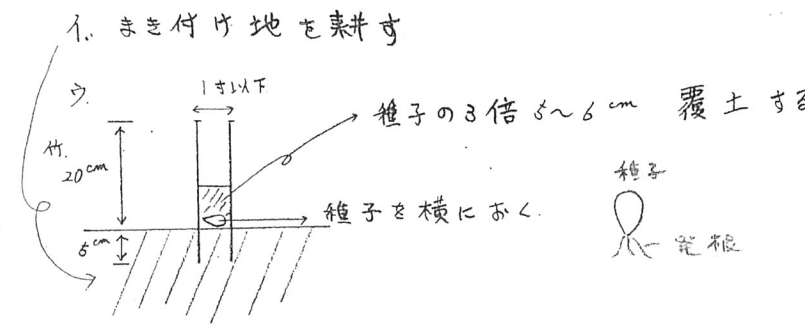 イ. まき付け地を耕す
ウ.
1寸以下
種子の3倍 5〜6cm 覆土する
竹.
20cm
種子
種子を横におく.
5cm
発根